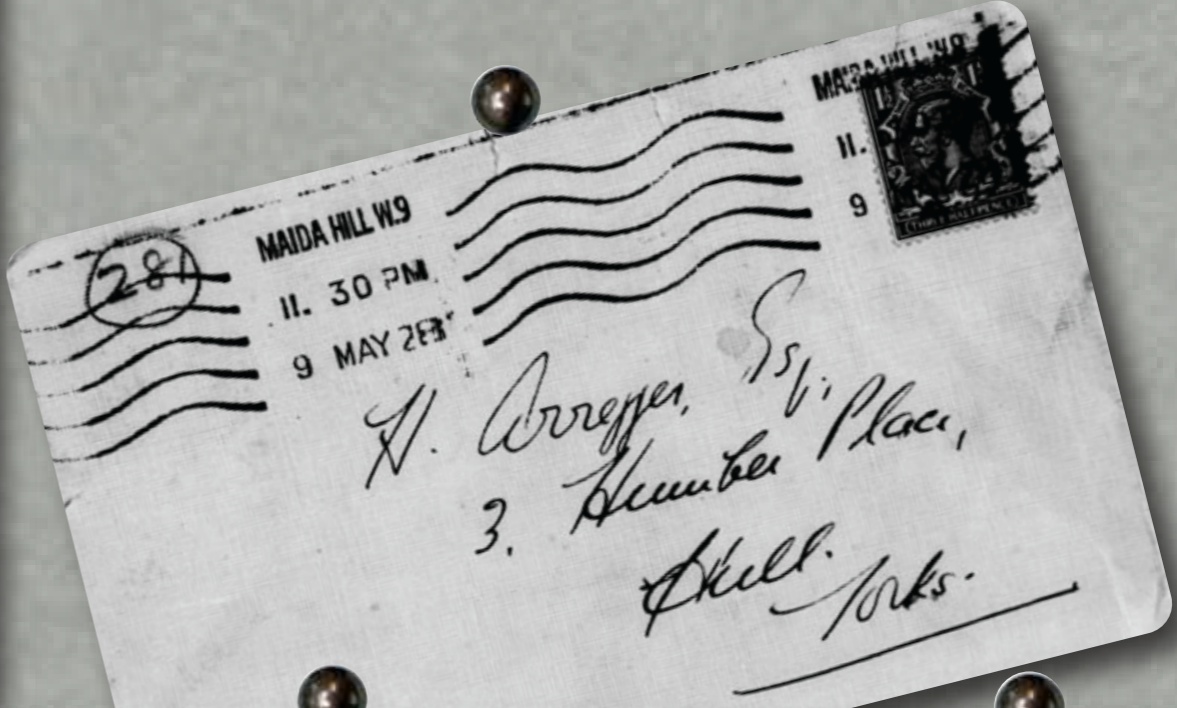 281
MAIDA HILL W.9
11. 30 PM
9 MAY
MAIDA HILL W.9
11.
9
H. Arregger, Esq.,
3. Humber Place,
Hull.
Yorks.